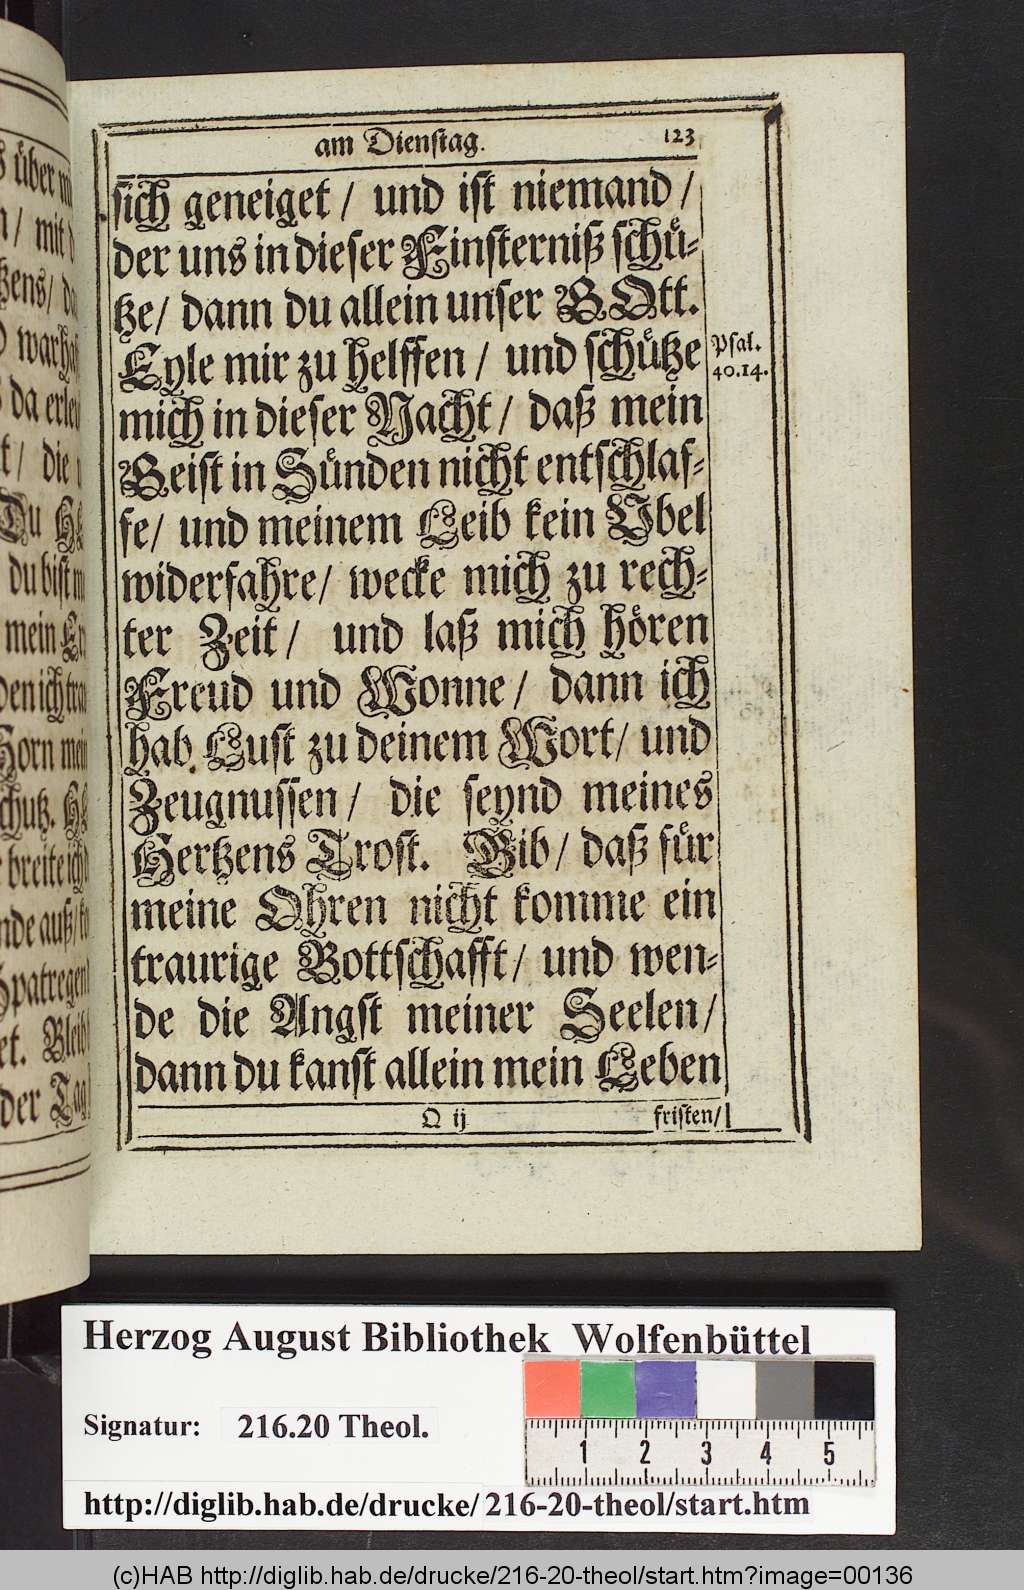 am Dienstag.
123
sich geneiget / und ist niemand /
der uns in dieser Finsterniß schü-
tze / dann du allein unser GOtt.
Eyle mir zu helffen / und schütze
Psal.
40.14.
mich in dieser Nacht / daß mein
Geist in Sünden nicht entschlaf-
fe / und meinem Leib kein Ubel
widerfahre / wecke mich zu rech-
ter Zeit / und laß mich hören
Freud und Wonne / dann ich
hab Lust zu deinem Wort / und
Zeugnussen / die seynd meines
Hertzens Trost. Gib / daß für
meine Ohren nicht komme ein
traurige Bottschafft / und wen-
de die Angst meiner Seelen /
dann du kanst allein mein Leben
Q ij
fristen /
über
/ mit
da erle
/ die
Du
du bist
mein
Horn mein
breite ich
Spatregen
et. Bleib
der Tag
Herzog August Bibliothek Wolfenbüttel
Signatur: 216.20 Theol.
1 2 3 4 5
http://diglib.hab.de/drucke/216-20-theol/start.htm
(c)HAB http://diglib.hab.de/drucke/216-20-theol/start.htm?image=00136